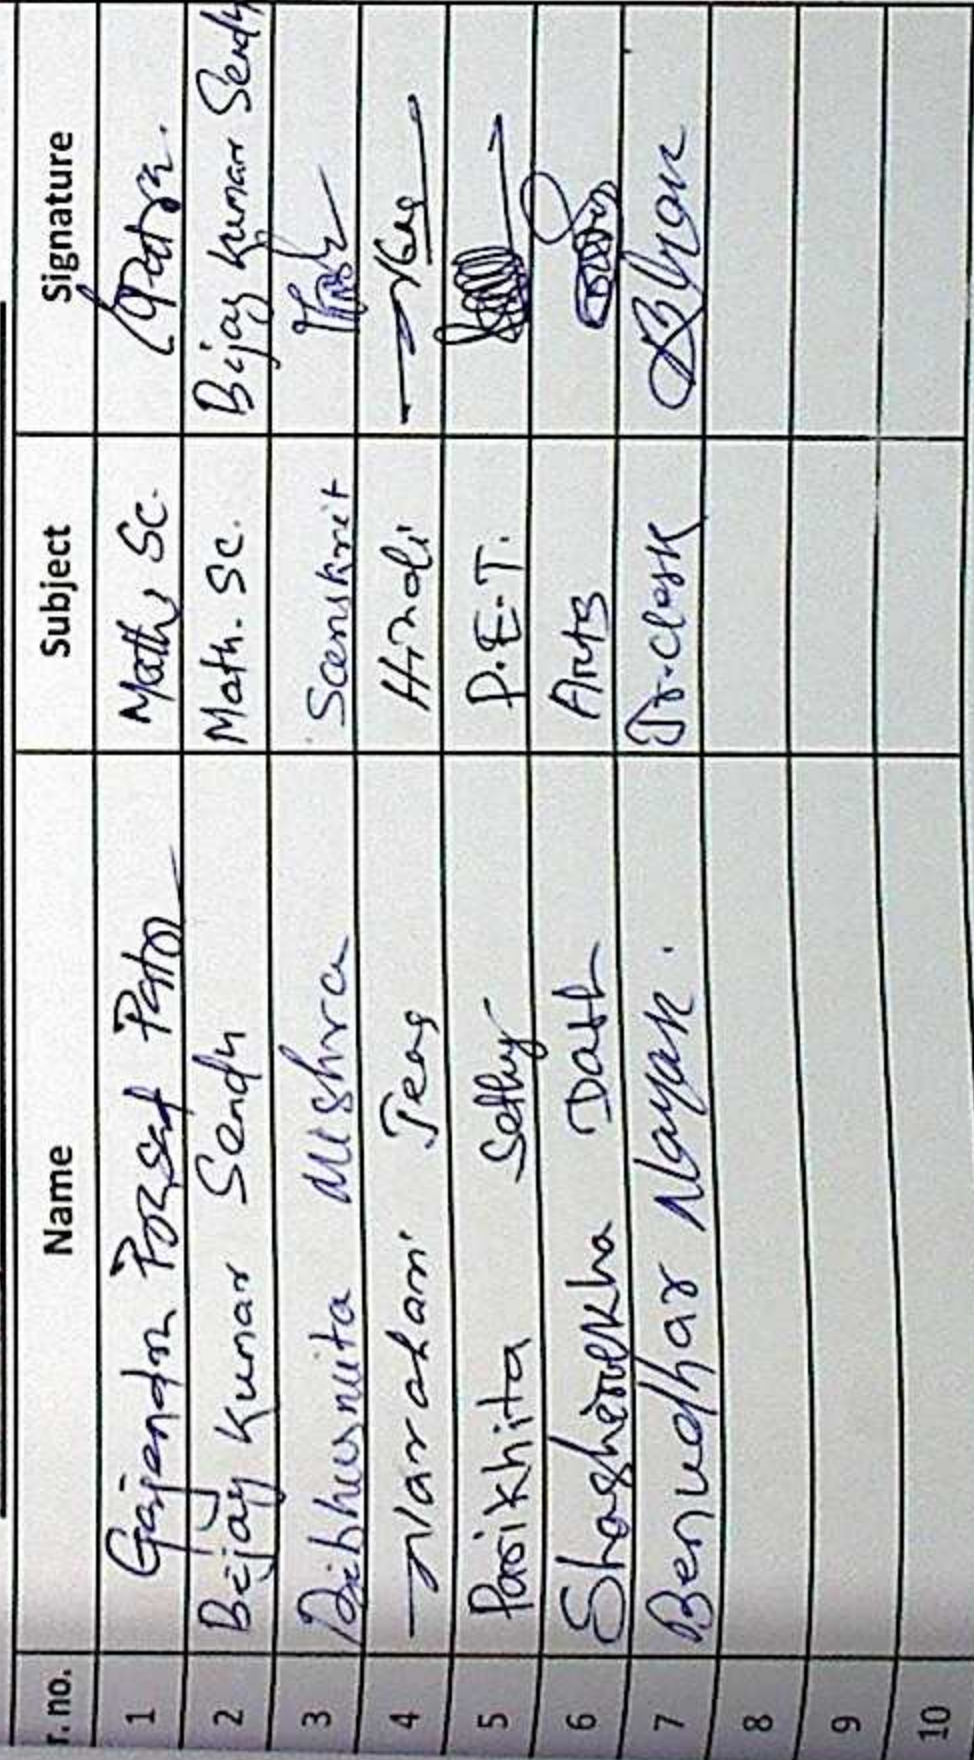 r. no. Name Subject Signature
1 Gajendra Prasad Patra Math, Sc. GPatra.
2 Bijay Kumar Sendh Math. Sc. Bijay Kumar Sendh
3 Bibhusmita Mishra Sanskrit
4 Narahari Jena Hindi
5 Parikhita Sethy P.E.T.
6 Dash Arts
7 Benudhar Nayak. Jr. Clerk
8
9
10